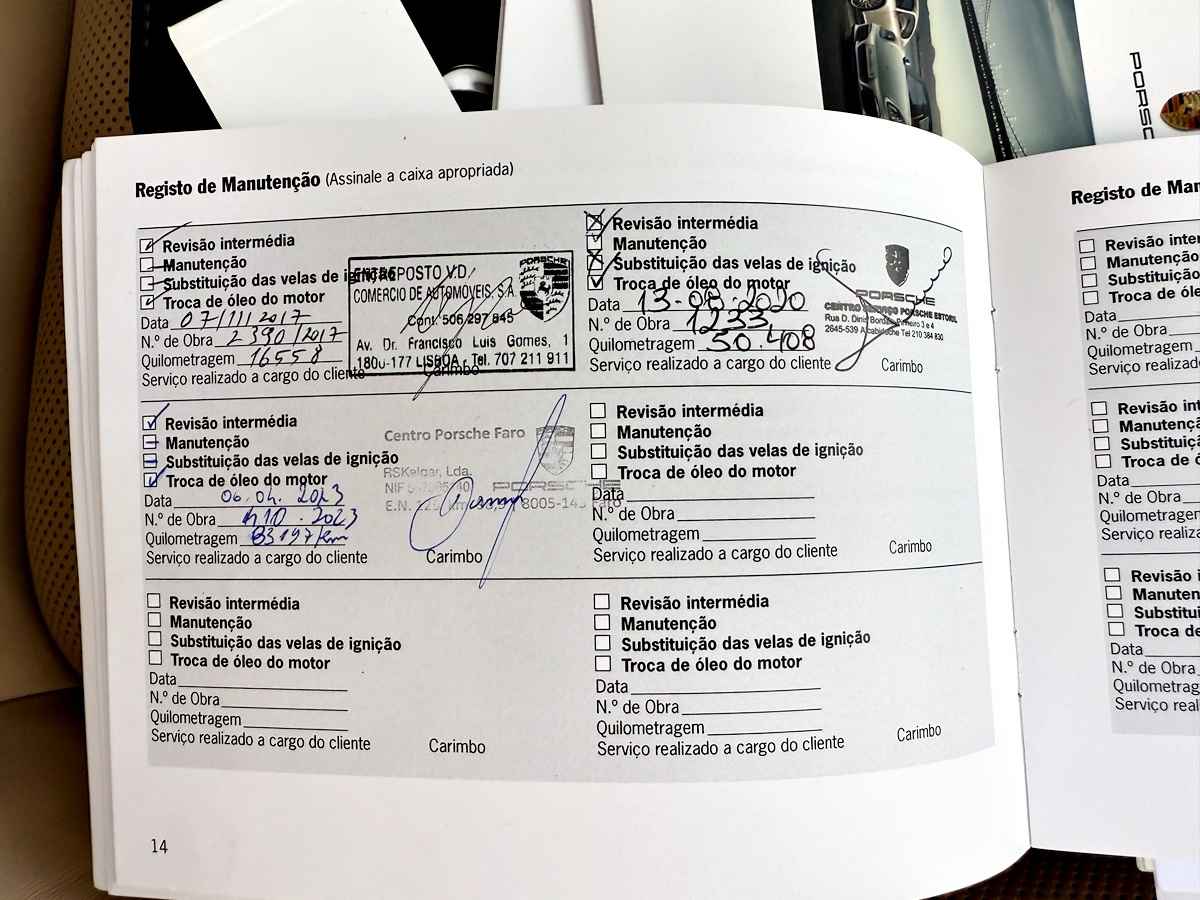 PORSCHE
Registo de Manutenção (Assinale a caixa apropriada)
Revisão intermédia
Manutenção
Substituição das velas de ignição
Troca de óleo do motor
Data 07/11/2017
N.º de Obra 2390/2017
Quilometragem 16558
Serviço realizado a cargo do cliente
Carimbo
ENTREPOSTO V.D.
COMÉRCIO DE AUTOMÓVEIS, S.A.
Cont. 506 297 845
Av. Dr. Francisco Luis Gomes, 1
1800-177 LISBOA - Tel. 707 211 911
PORSCHE
Revisão intermédia
Manutenção
Substituição das velas de ignição
Troca de óleo do motor
Data 13-08-2020
N.º de Obra 1233
Quilometragem 50.408
Serviço realizado a cargo do cliente
Carimbo
PORSCHE
CENTRO SERVIÇO PORSCHE ESTORIL
Rua D. Dinis Bordalo Pinheiro 3 e 4
2645-539 Alcabideche Tel 210 384 830
Revisão intermédia
Manutenção
Substituição das velas de ignição
Troca de óleo do motor
Data 06.04.2023
N.º de Obra 410.2023
Quilometragem 83197km
Serviço realizado a cargo do cliente
Carimbo
Centro Porsche Faro
RSKelgar, Lda.
NIF
E.N. 125, km 8005-145 Faro
PORSCHE
Revisão intermédia
Manutenção
Substituição das velas de ignição
Troca de óleo do motor
Data
N.º de Obra
Quilometragem
Serviço realizado a cargo do cliente
Carimbo
Revisão intermédia
Manutenção
Substituição das velas de ignição
Troca de óleo do motor
Data
N.º de Obra
Quilometragem
Serviço realizado a cargo do cliente
Carimbo
Revisão intermédia
Manutenção
Substituição das velas de ignição
Troca de óleo do motor
Data
N.º de Obra
Quilometragem
Serviço realizado a cargo do cliente
Carimbo
14
Registo de Man
Revisão inter
Manutenção
Substituição
Troca de óleo
Data
N.º de Obra
Quilometragem
Serviço realizado
Revisão inter
Manutenç
Substituiç
Troca de ó
Data
N.º de Obra
Quilometragem
Serviço realiza
Revisão i
Manuten
Substitui
Troca de
Data
N.º de Obra
Quilometrage
Serviço reali